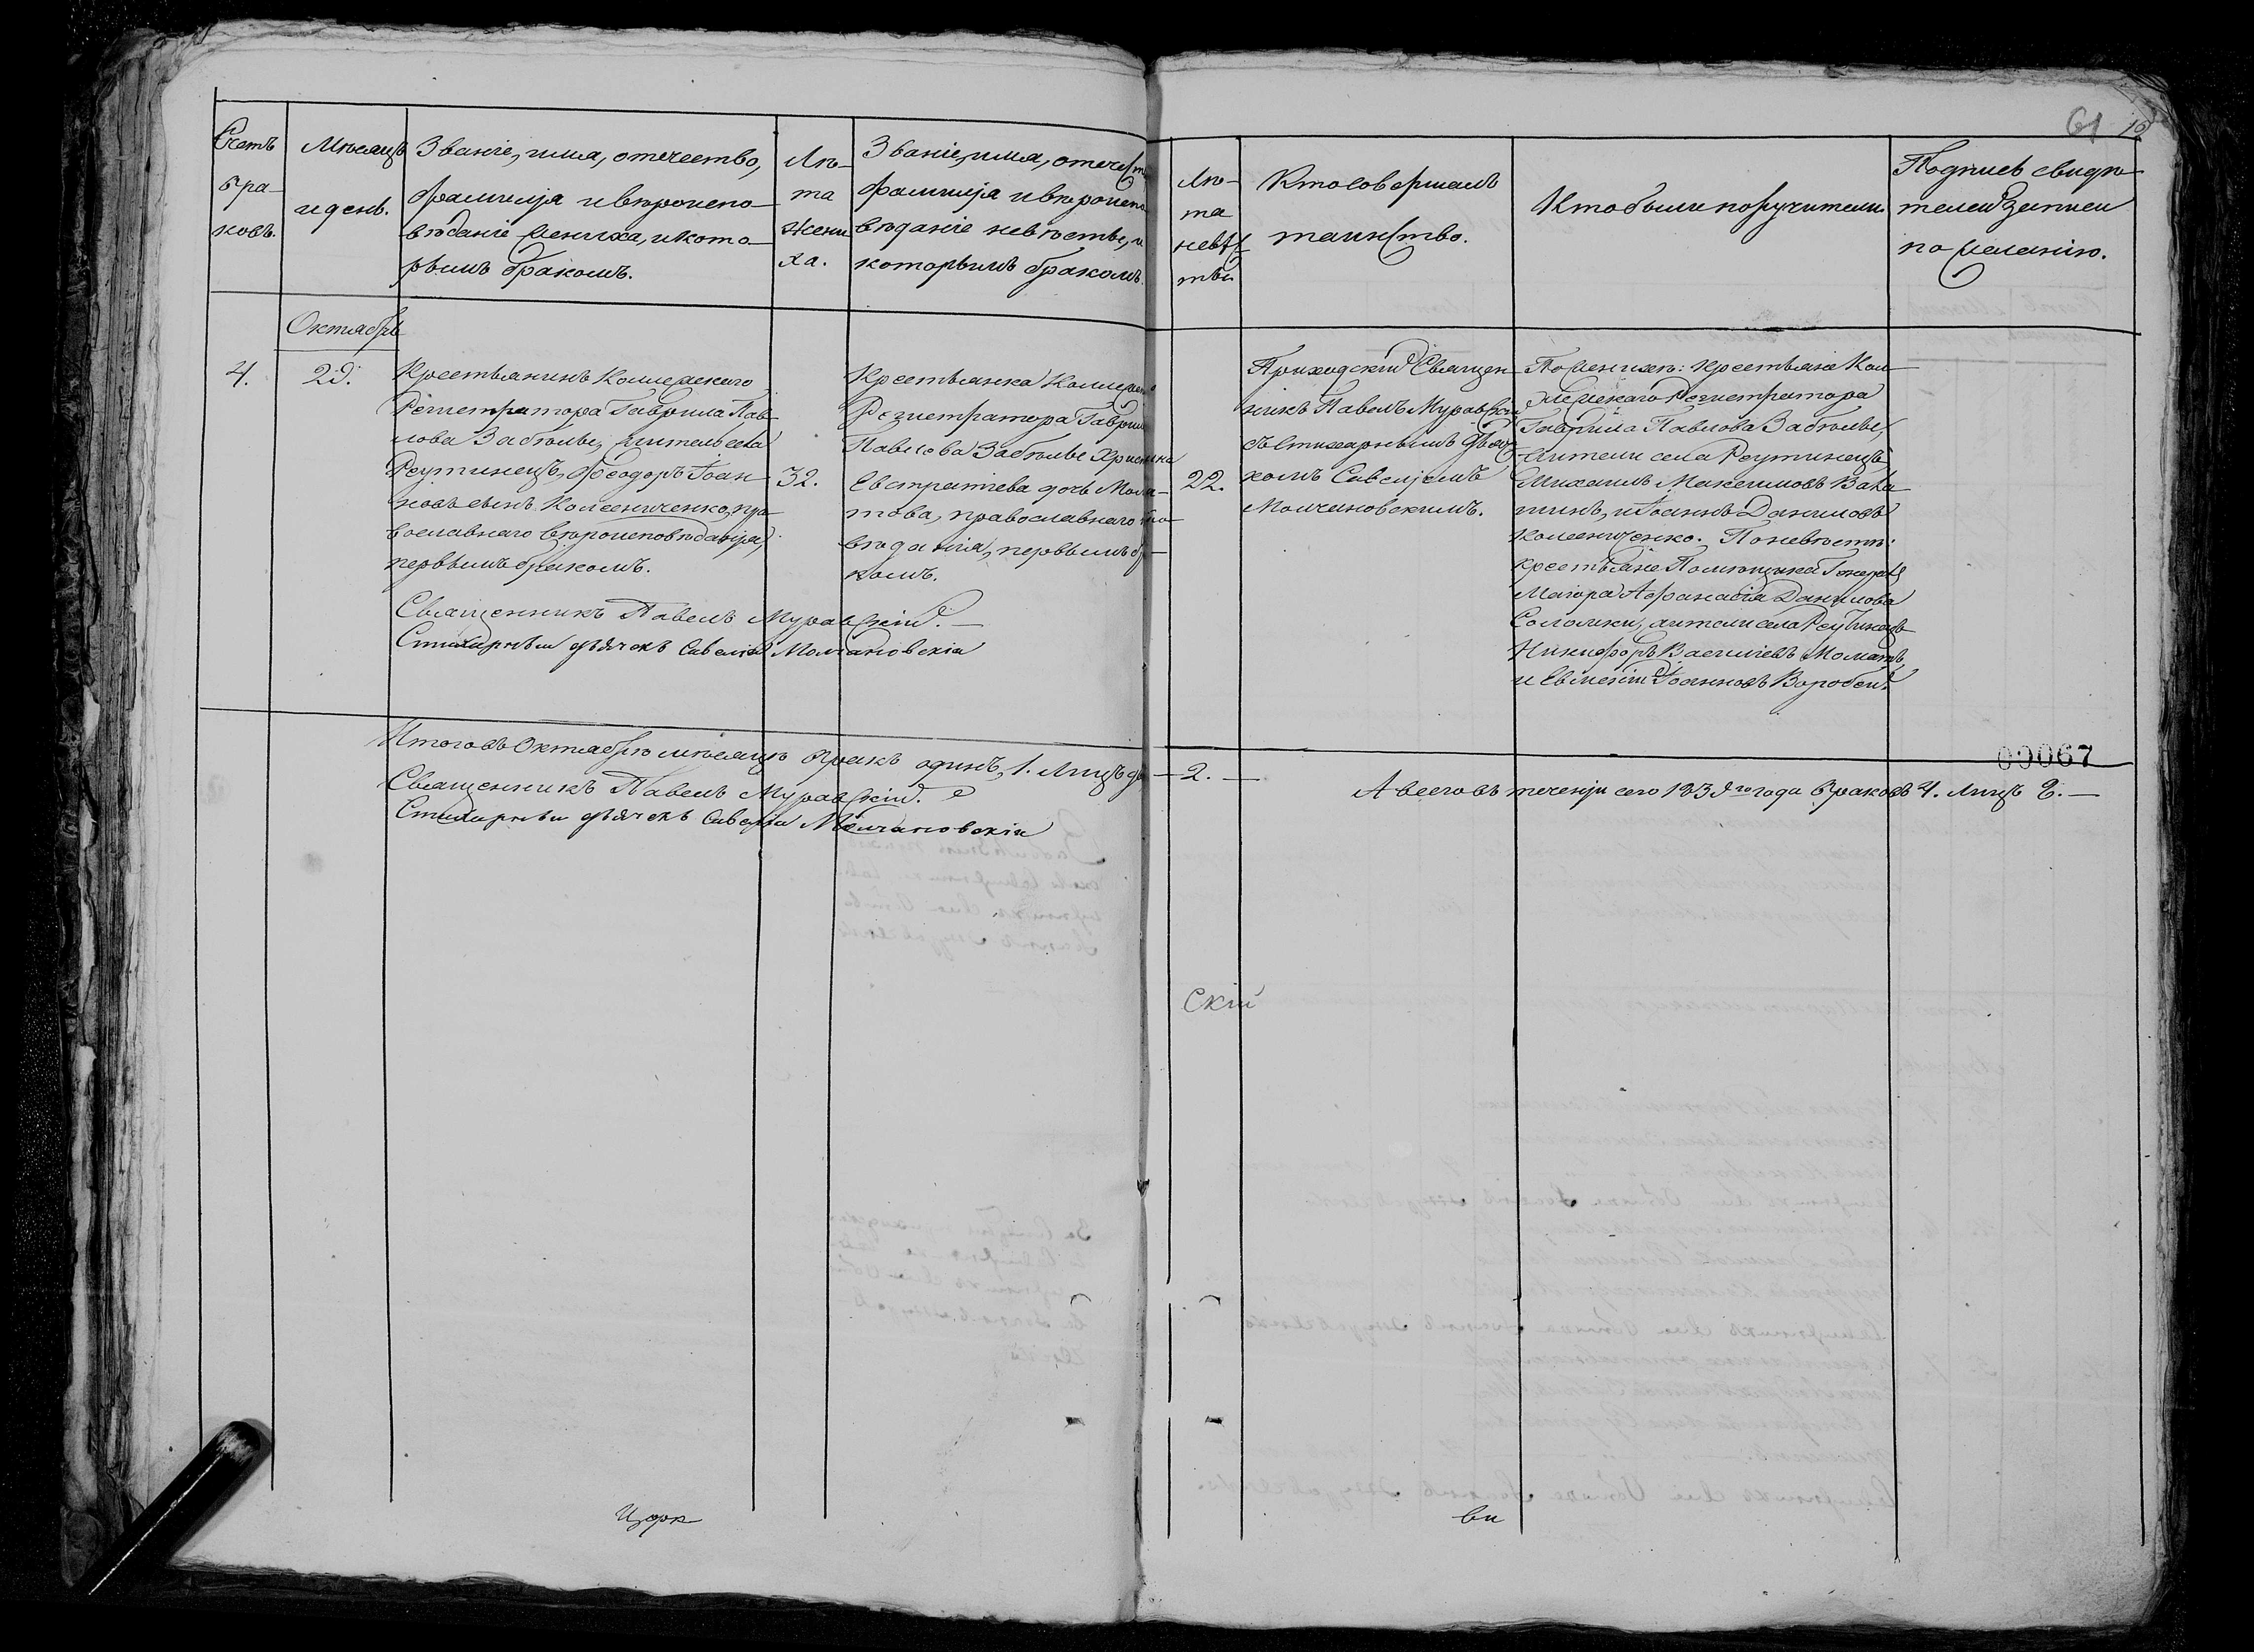 61 16
Счетъ
бра-
ковъ.
Мѣсяцъ
и день.
Званіе, имя, отчество,
фамилія и вѣроиспо-
вѣданіе жениха, и кото-
рымъ бракомъ.
Лѣ-
та
жени
ха.
Званіе, имя, отчество
фамилія и вѣроиспо-
вѣданіе невѣсты, и
которымъ бракомъ.
Лѣ-
та
невѣс
ты
Кто совершалъ
таинство.
Кто были поручители.
Подпись свидѣ-
телей записи
по желанію.
Октябрь
4.
Крестьянинъ Коллежскаго
Регистратора Гавріила Пав-
лова Забѣлы, житель села
Реутинецъ, Ѳеодоръ Іоан-
новъ сынъ Колесниченко, пра-
вославнаго вѣроисповѣданія,
первымъ бракомъ.
32.
Крестьянка Коллежскаго
Регистратора Гавріила
Павлова Забѣлы Христина
Евстратіева дочь Мома-
това, православнаго
вѣданія, первымъ
комъ.
22.
Приходскій Священ-
никъ Павелъ Муравскій
съ Стихарнымъ Дьяч-
комъ Савеліемъ
Молчановскимъ.
По женихѣ: крестьяне Кол-
лежскаго Регистратора
Гавріила Павлова Забѣлы,
жители села Реутинецъ
Михаилъ Максимовъ
и Іоаннъ Даниловъ
Колесниченко. По невѣстѣ:
крестьяне Помѣщика Генералъ
Маіора Афанасія Данилова
Соломки, жители села Реутинецъ
Никифоръ Василіевъ Моматъ
и Евменій Іоанновъ Воробей.
Священникъ Павелъ Муравскій.—
Стихарный дьячекъ Савелій Молчановскій
Итого въ Октябрѣ мѣсяцѣ бракъ одинъ, 1. Лицъ двѣ — 2. —
Священникъ Павелъ Муравскій.
Стихарный дьячекъ Савелій Молчановскій
00067
А всего въ теченіи сего года браковъ 4. Лицъ 8.—
Скій
Церк
ви